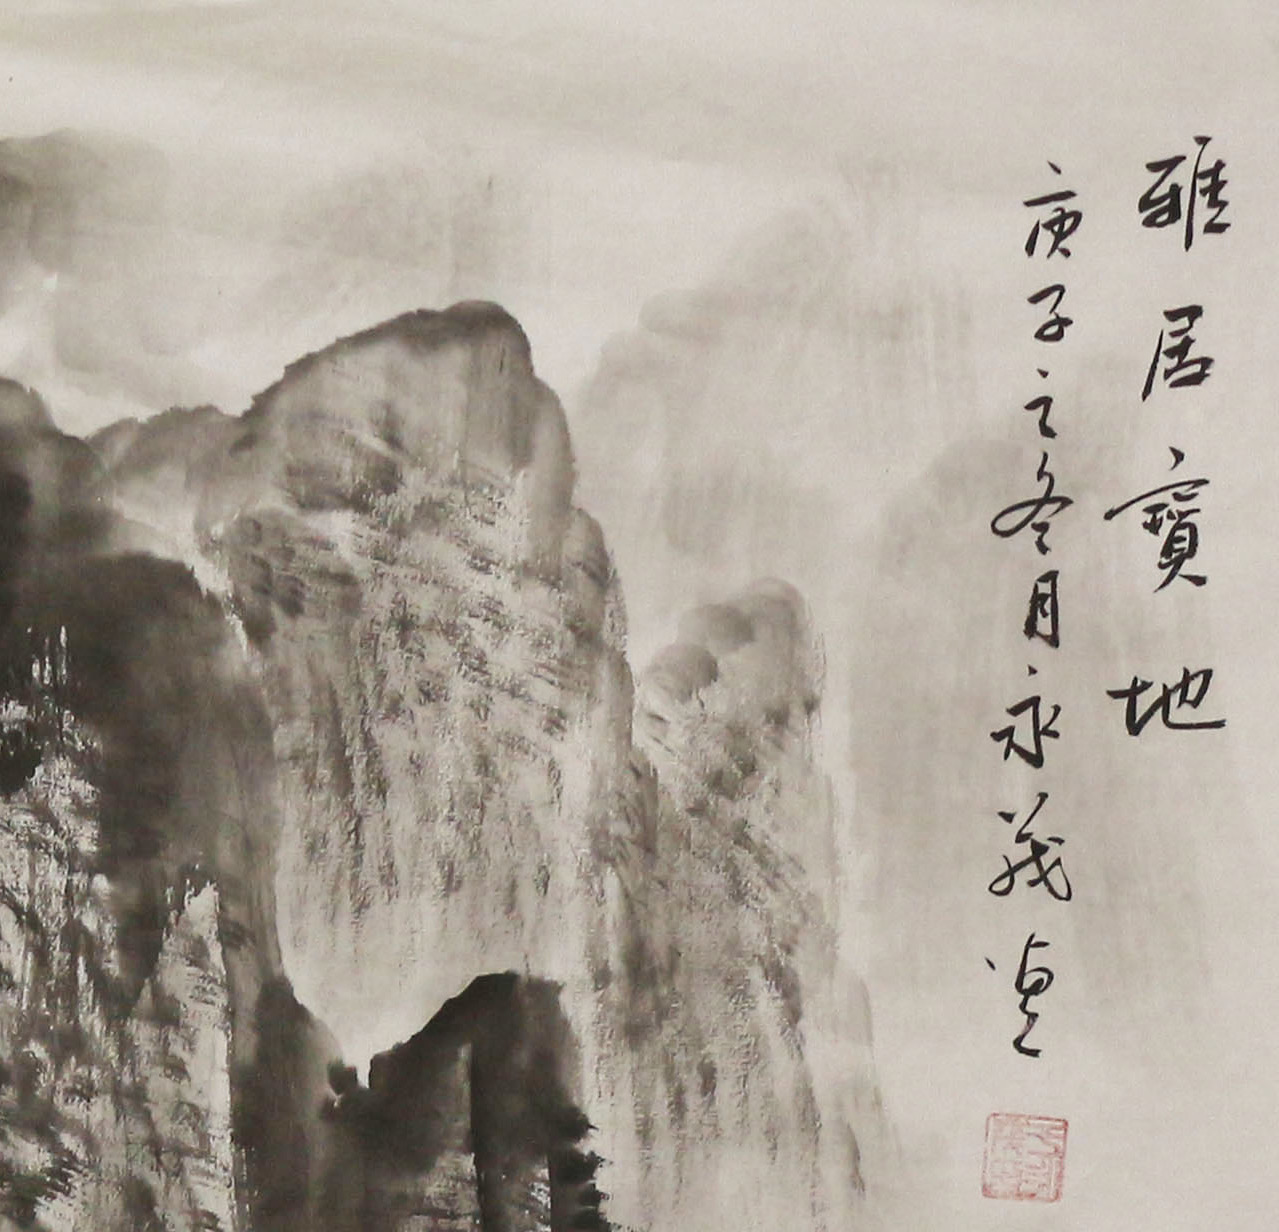 雅居寶地
庚子之冬月永茂画